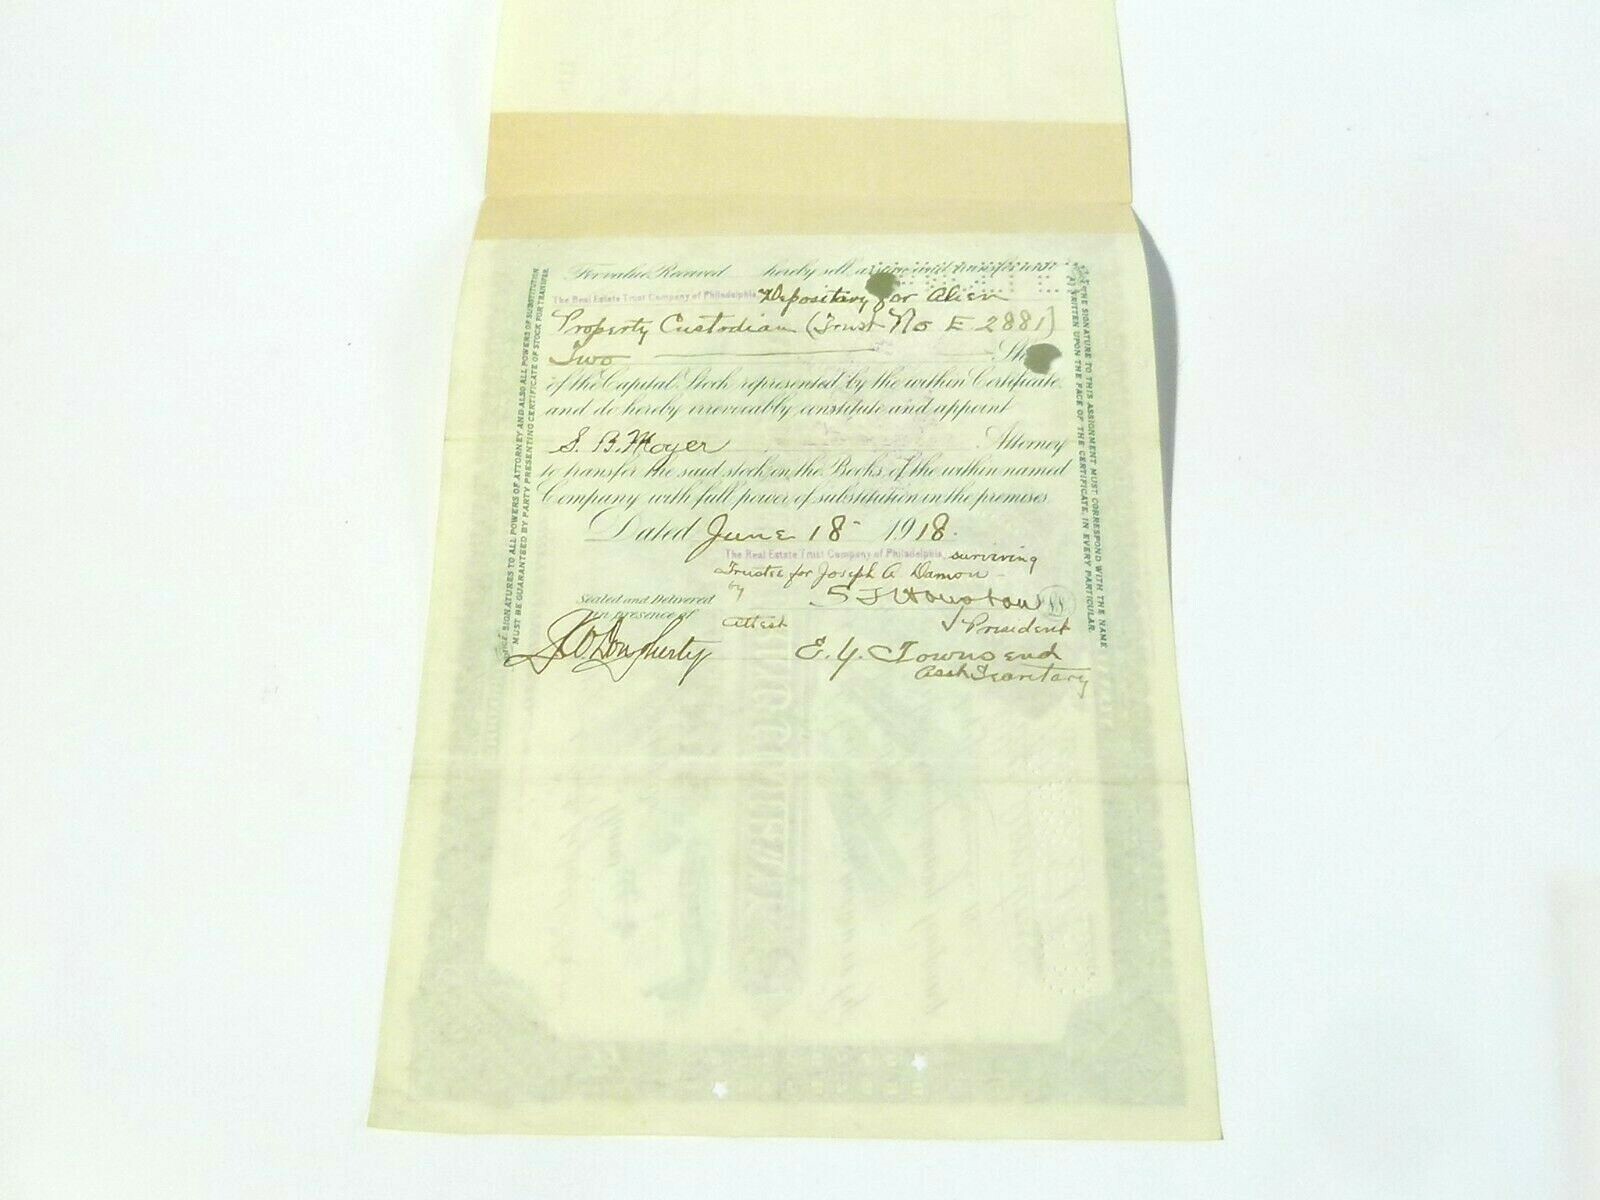 For value Received hereby sell, assign and transfer unto
The Real Estate Trust Company of Philadelphia, Depositary for Alien
Property Custodian (Trust No E 2881)
Two Sh
of the Capital Stock represented by the within Certificate
and do hereby irrevocably constitute and appoint
S. B. Moyer Attorney
to transfer the said stock on the Books of the within named
Company with full power of substitution in the premises
Dated June 18 1918.
The Real Estate Trust Company of Philadelphia, surviving
Trustee for Joseph A. Damon
by S F Houston L.S.
Sealed and Delivered
in presence of
Attest President
Dougherty E. Y. Townsend
Asst Secretary
SIGNATURES TO ALL POWERS OF ATTORNEY AND ALSO ALL POWERS OF SUBSTITUTION
MUST BE GUARANTEED BY PARTY PRESENTING CERTIFICATE OF STOCK FOR TRANSFER.
THE SIGNATURE TO THIS ASSIGNMENT MUST CORRESPOND WITH THE NAME
AS WRITTEN UPON THE FACE OF THE CERTIFICATE, IN EVERY PARTICULAR.